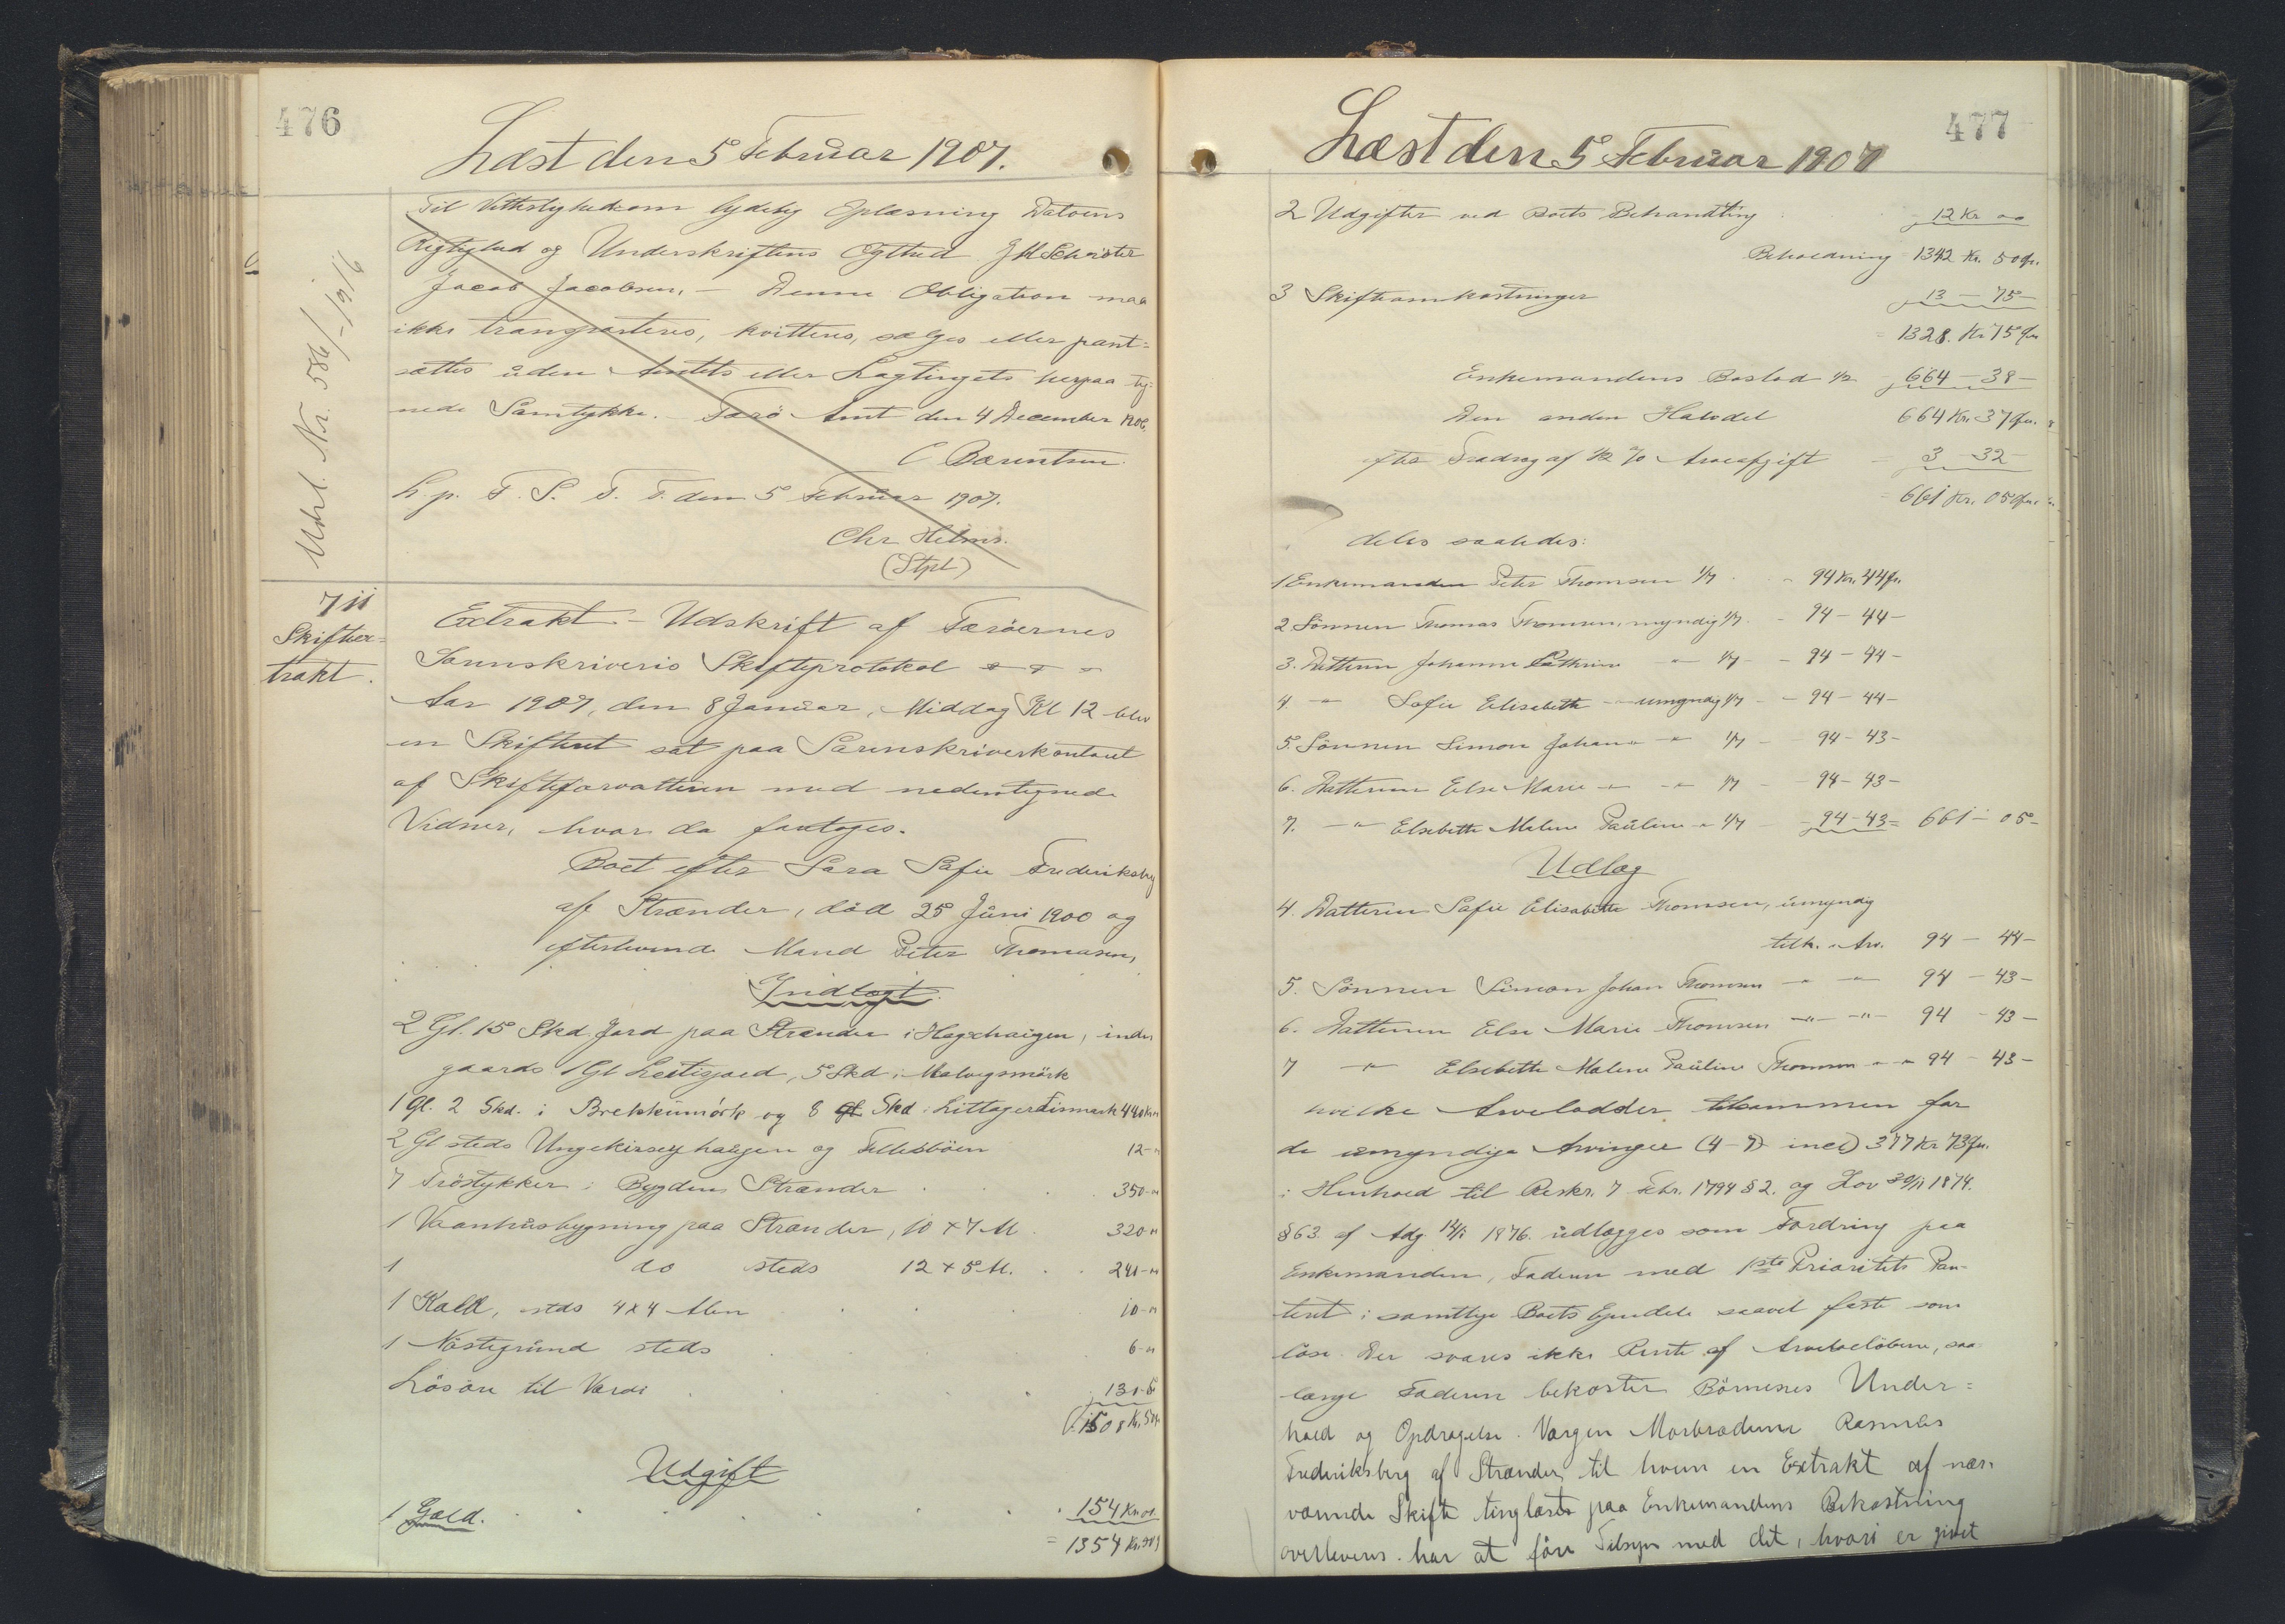 476
Læst den 5 Februar 1907.
Til Vitterlighed om lydelig Oplæsning Datoens
Rigtighed og Underskriftens Ægthed J M Schrøter
Jacob Jacobsen. - Denne Obligation maa
ikke transporteres, kvitteres, sælges eller pant-
sættes uden Amtets eller Lagtingets herpaa teg-
nede Samtykke. - Færø Amt den 4 December 1906.
C Bærentsen.
L. p. F. S. T. T. den 5 Februar 1907.
Chr Helms.
(Stpl)
Udsl. Nr. 586/-1916
711
Skifteex-
trakt.
Extrakt - Udskrift af Færöernes
Sorenskriveris Skifteprotokol
Aar 1907, den 8 Januar, Middag Kl 12 blev
en Skifteret sat paa Sorenskriverkontoret
af Skifteforvalteren med nedentegnede
Vidner, hvor da foretoges.
Boet efter Sara Sofie Frederiksberg
af Strænder, död 25 Juni 1900 og
efterlevende Mand Peter Thomsen,
Indtægt.
2 Gl. 15 Skd Jord paa Strænder i Hagehaigen, inden
gaards 1 Gl Leitisjord, 5 Skd i Malvegsmörk
1 Gl. 2 Skd. i Brekkumörk og 8 gl Skd i 440 Kr
2 Gl steds og 12-"
7 Tröstykker i Bygden Strænder 350-"
1 Vaanhusbygning paa Strænder, 10 x 7 Al 320-"
1 do steds 12 x 5 Al. 240-"
1 Kald, steds 4 x 4 Alen 10-"
1 Nöstegrund steds 6-"
Lösöre til Værdi 130-50
1508 Kr. 50
Udgift
1 Gæld. 154 Kr. 00
= 1354 Kr. 50
477
Læst den 5 Februar 1907
2 Udgifter ved Boets Behandling 12 Kr 00
Beholdning 1342 Kr. 50 Ør.
3 Skifteomkostninger 13 - 75 -
= 1328. Kr 75 Ør
Enkemandens Boslod 1/2 664 - 38 -
Den anden Halvdel 664 Kr. 37 Ør.
efter Fradrag af 1/2 % Arveafgift 3 - 32 -
= 661 Kr. 05 Ør.
deles saaledes:
1 Enkemanden Peter Thomsen 1/7 - 94 Kr. 44 Ør.
2 Sönnen Thomas Thomsen, myndig 1/7 - 94 - 44 -
3. Datteren Johanne Cathrine - " - 1/7 - 94 - 44 -
4 - " - Sofie Elisabeth - umyndig 1/7 - 94 - 44 -
5. Sönnen Simon Johan - " - 1/7 - 94 - 43 -
6. Datteren Else Marie - " - " - 1/7 - 94 - 43 -
7. - " - Elsebeth Malene Pauline - " 1/7 - 94 - 43 = 661 - 05 -
Udlæg
4. Datteren Sofie Elisabeth Thomsen, umyndig
tilk. i Arv. 94 - 44 -
5. Sönnen Simon Johan Thomsen - " - " - 94 - 43 -
6. Datteren Else Marie Thomsen - " - " - 94 - 43 -
7 - " - Elsebeth Malene Pauline Thomsen - " - " 94 - 43 -
hvilke Arvelodder tilsammen for
de umyndige Arvinger (4-7) incl) 377 Kr 73 Ør.
i Henhold til Reskr. 7 Febr. 1794 § 2. og Lov 30/11 1874.
§ 63. af Adg. 14/1 1876. udlægges som Fordring paa
Enkemanden, Faderen med 1ste Prioritets Pan-
teret i samtlige Boets Ejendele saavel faste som
löse. Der svares ikke Rente af Arvebelöbene, saa
længe Faderen bekoster Börnenes Under-
hold og Opdragelse. Værgen Morbroderen Rasmus
Frederiksberg af Strænder, til hvem en Extrakt af nær-
værende Skifte tinglæst paa Enkemandens Bekostning
overleveres. har at före Tilsyn med det, hvori er givet